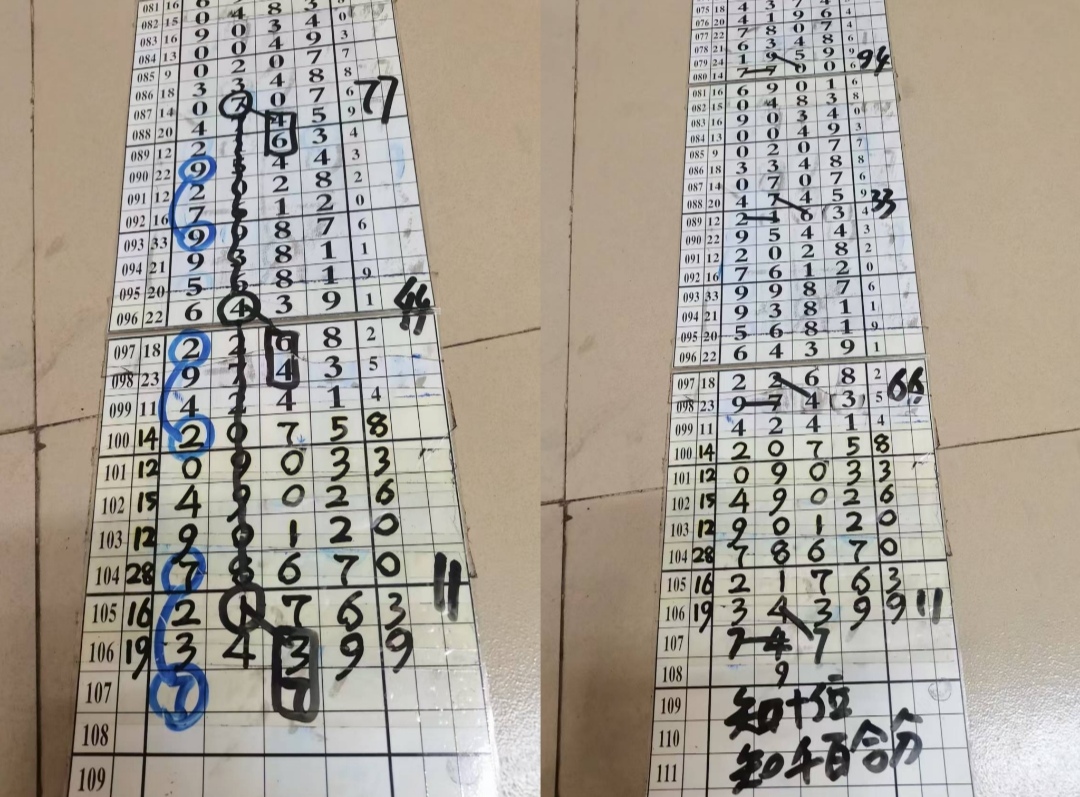 081 16 6
082 15 0 4 8 3
083 16 9 0 3 4 0
084 13 0 0 4 9 3
085 9 0 2 0 7 7
086 18 3 3 4 8 8
087 14 0 7 0 7 6 77
088 20 4 7 4 5 9
089 12 2 1 6 3 4
090 22 9 5 4 4 3
091 12 2 0 2 8 2
092 16 7 6 1 2 0
093 33 9 9 8 7 6
094 21 9 3 8 1 1
095 20 5 6 8 1 9
096 22 6 4 3 9 1 44
097 18 2 2 6 8 2
098 23 9 7 4 3 5
099 11 4 2 4 1 4
100 14 2 0 7 5 8
101 12 0 9 0 3 3
102 15 4 9 0 2 6
103 12 9 0 1 2 0
104 28 7 8 6 7 0
105 16 2 1 7 6 3 11
106 19 3 4 3 9 9
107 7 7
108
109
075 18 4 3 7 4
076 20 4 1 9 6
077 22 7 8 0 7 4
078 21 6 3 4 8 6
079 24 1 9 5 9 9 94
080 14 7 7 0 0 6
081 16 6 9 0 1 6
082 15 0 4 8 3 8
083 16 9 0 3 4 0
084 13 0 0 4 9 3
085 9 0 2 0 7 7
086 18 3 3 4 8 8
087 14 0 7 0 7 6
088 20 4 7 4 5 9 33
089 12 2 1 6 3 4
090 22 9 5 4 4 3
091 12 2 0 2 8 2
092 16 7 6 1 2 0
093 33 9 9 8 7 6
094 21 9 3 8 1 1
095 20 5 6 8 1 9
096 22 6 4 3 9 1
097 18 2 2 6 8 2 66
098 23 9 7 4 3 5
099 11 4 2 4 1 4
100 14 2 0 7 5 8
101 12 0 9 0 3 3
102 15 4 9 0 2 6
103 12 9 0 1 2 0
104 28 7 8 6 7 0
105 16 2 1 7 6 3
106 19 3 4 3 9 9 11
107 7 4 7
108 9
109 知十位
110
111 知千百合分